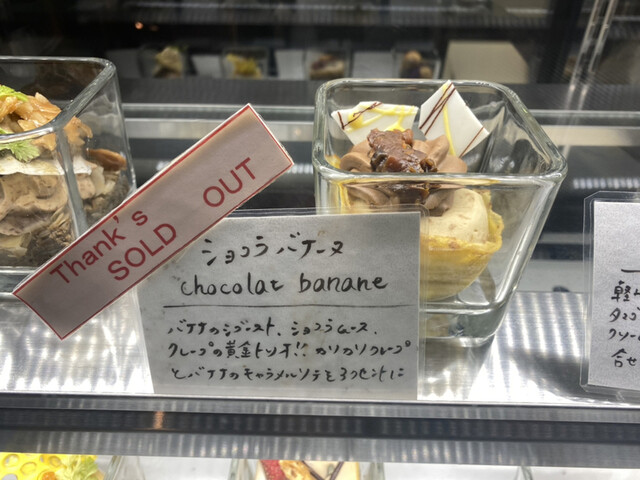 Thank's
SOLD OUT
ショコラ バナーヌ
chocolat banane
バナナのシブースト、ショコラムース、
クレープの黄金トリオ!! カリカリクレープ
とバナナのキャラメルソテーをアクセントに
軽い
合せ